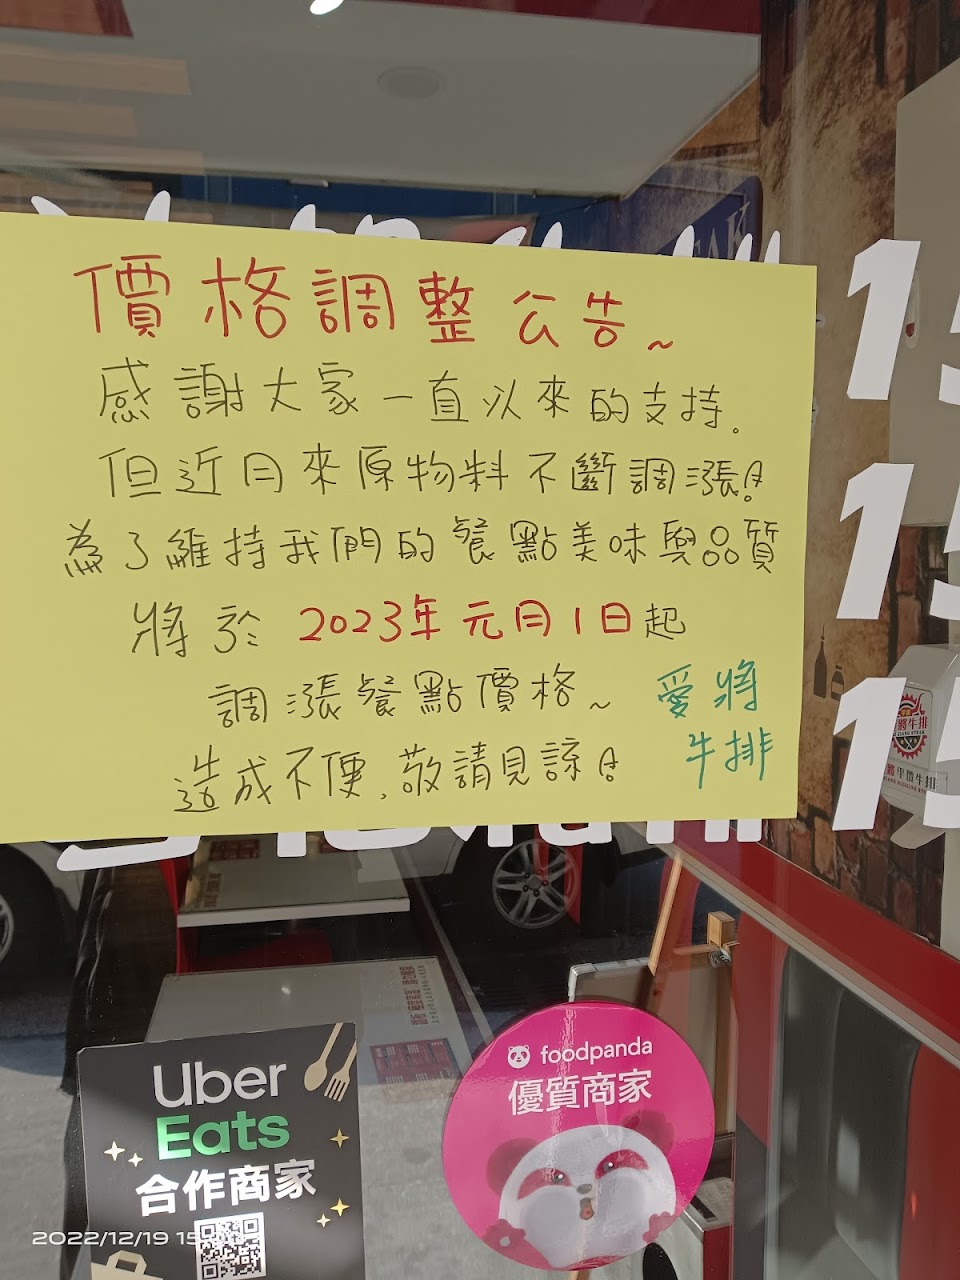 價格調整公告~
感謝大家一直以來的支持。
但近月來原物料不斷調漲!
為了維持我們的餐點美味與品質
將於 2023年元月1日起
調漲餐點價格~
造成不便,敬請見諒!
愛將
牛排
15
15
15
將牛排
將平價牛排
Uber
Eats
合作商家
foodpanda
優質商家
2022/12/19 15